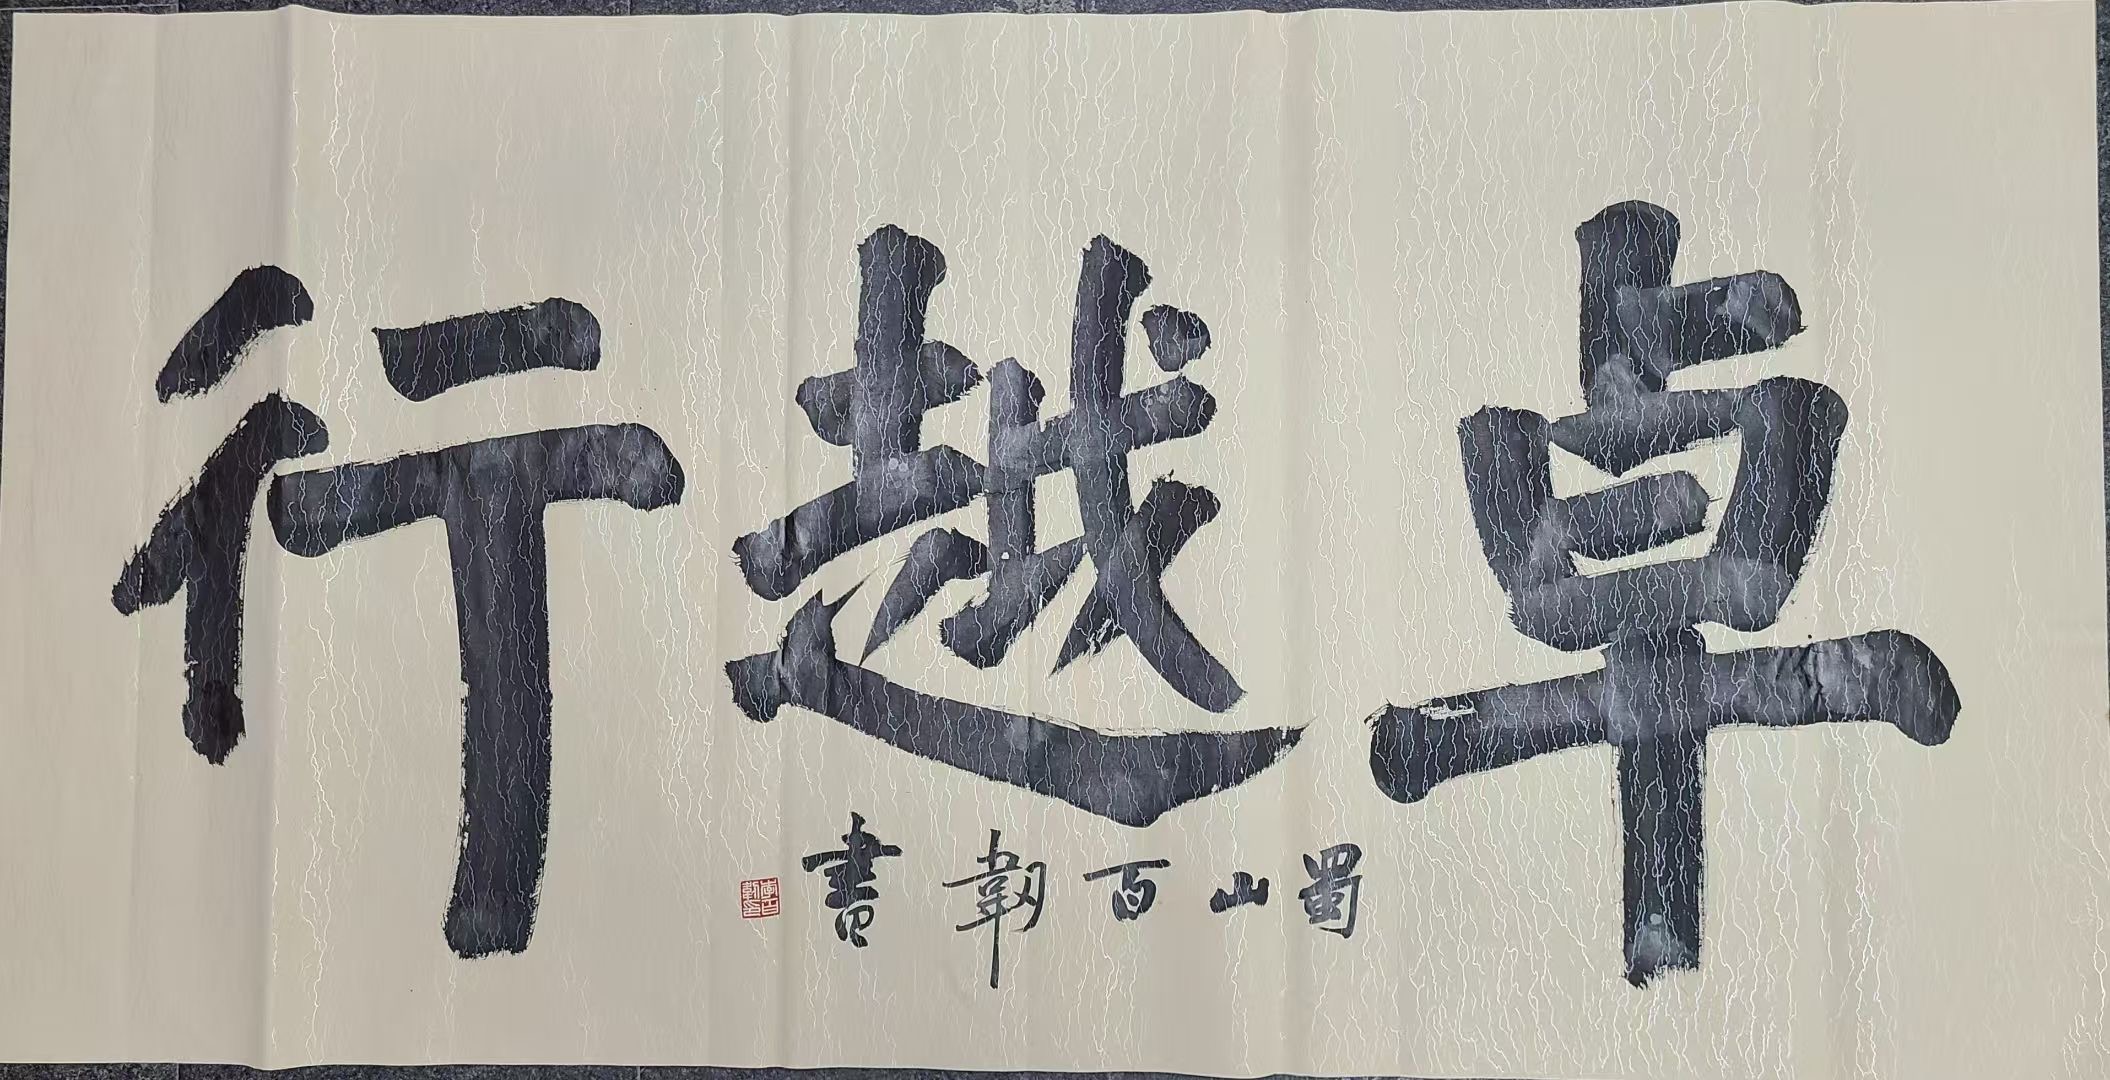 卓越行
蜀山百韌書